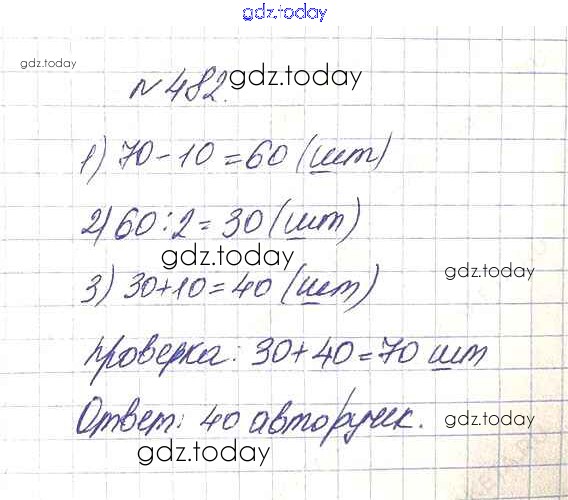 gdz.today
gdz.today
№ 482. gdz.today
1) 70 - 10 = 60 (шт)
2) 60 : 2 = 30 (шт)
gdz.today
gdz.today
3) 30 + 10 = 40 (шт)
проверка: 30 + 40 = 70 шт
Ответ: 40 авторучек.
gdz.today
gdz.today